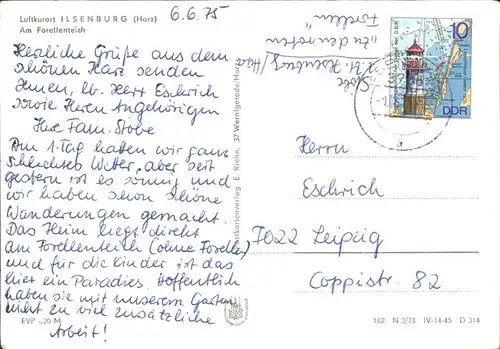 Luftkurort ILSENBURG (Harz)
Am Forellenteich
6.6.75
Herzliche Grüße aus dem
schönen Harz senden
Ihnen, lb. Herr Eschrich
sowie Ihren Angehörigen
Ihre Fam. Stobe
Am 1. Tag hatten wir ganz
schlechtes Wetter, aber seit
gestern ist es sonnig und
wir haben schon schöne
Wanderungen gemacht.
Das Heim liegt direkt
am Forellenteich (ohne Forellen)
und für die Kinder ist das
hier ein Paradies. Hoffentlich
haben sie mit unserem Garten
nicht zu viel zusätzliche
Arbeit!
EVP -,20 M
Postkartenverlag E. Riehn, 37 Wernigerode/Harz
Stobe
z. Zt. Ilsenburg/Harz
"Zu den roten
Forellen"
10
DDR
Herrn
Eschrich
7022 Leipzig
Coppistr. 82
162 N 3/73 IV-14-45 D 314